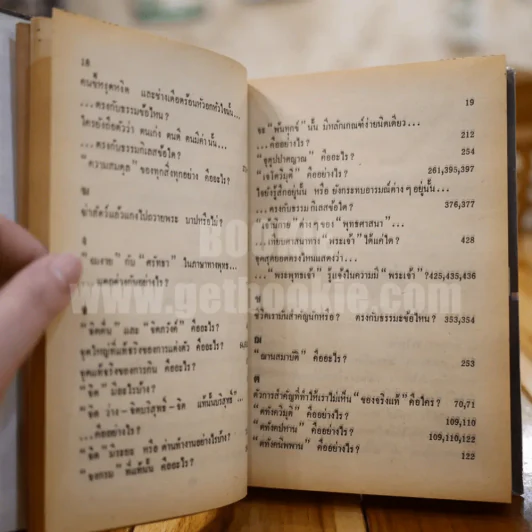 18
คนขี้หงุดหงิด และช่างเดือดร้อนหัวอกหัวใจนั้น...
...ตรงกับธรรมข้อไหน?
ใครยังถือตัวว่า คนเก่ง คนดี คนมีค่า นั้น...
...ตรงกับธรรมกิเลสข้อใด?
"ความสมดุล" ของทุกสิ่งทุกอย่าง คืออะไร?
ฆ
ฆ่าสัตว์แล้วแกงไปถวายพระ บาปหรือไม่?
"ศรัทธา" ในภาษาทางพุทธ...
...แตกต่างกันอย่างไร?
"จิตตื่น" และ "จิตภวังค์" คืออะไร?
จุดใหญ่ที่แท้จริงของการแต่งตัว คืออะไร?
จุดแท้จริงของการกิน คืออะไร?
"จิต" มีอะไรบ้าง?
"จิต ว่าง-จิตบริสุทธิ์-จิต แท้นั้นบริสุทธิ์"...
...คืออย่างไร?
"จิต" หรือ ด่านทำงานอย่างไรบ้าง?
ที่แท้นั้น คืออะไร?
19
"พันทุกข์" นั้น มีหลักเกณฑ์ง่ายนิดเดียว...
...คืออย่างไร? 212
"จุตูปปาตญาณ" คืออะไร? 254
"เจโตวิมุติ" คืออย่างไร? 261,395,397
ใจยังรู้สึกอยู่นั้น หรือ ยังกระทบอารมณ์ต่าง ๆ อยู่นั้น...
...ตรงกับธรรมกิเลสข้อใด? 376,377
"เจ้านิกาย" ต่าง ๆ ของ "พุทธศาสนา"...
...เทียบศาสนาทาง "พระเจ้า" ได้แก่ใด? 428
จุดสุดยอดตรงไหนแสดงว่า...
..."พระพุทธเจ้า" รู้แจ้งในความมี "พระเจ้า"?425,435,436
ช
ชีวิตเรามันสำคัญนักหรือ? ตรงกับธรรมะข้อไหน? 353,354
ฌ
"ฌานสมาบัติ" คืออะไร? 253
ต
ตัวการสำคัญที่ทำให้เราไม่เห็น "ของจริงแท้" คือใคร? 70,71
"ตทังควิมุติ" คืออย่างไร? 109,110
"ตทังคปหาน" คืออย่างไร? 109,110,122
"ตทังคนิพพาน" คืออย่างไร? 122
www.getbookie.com